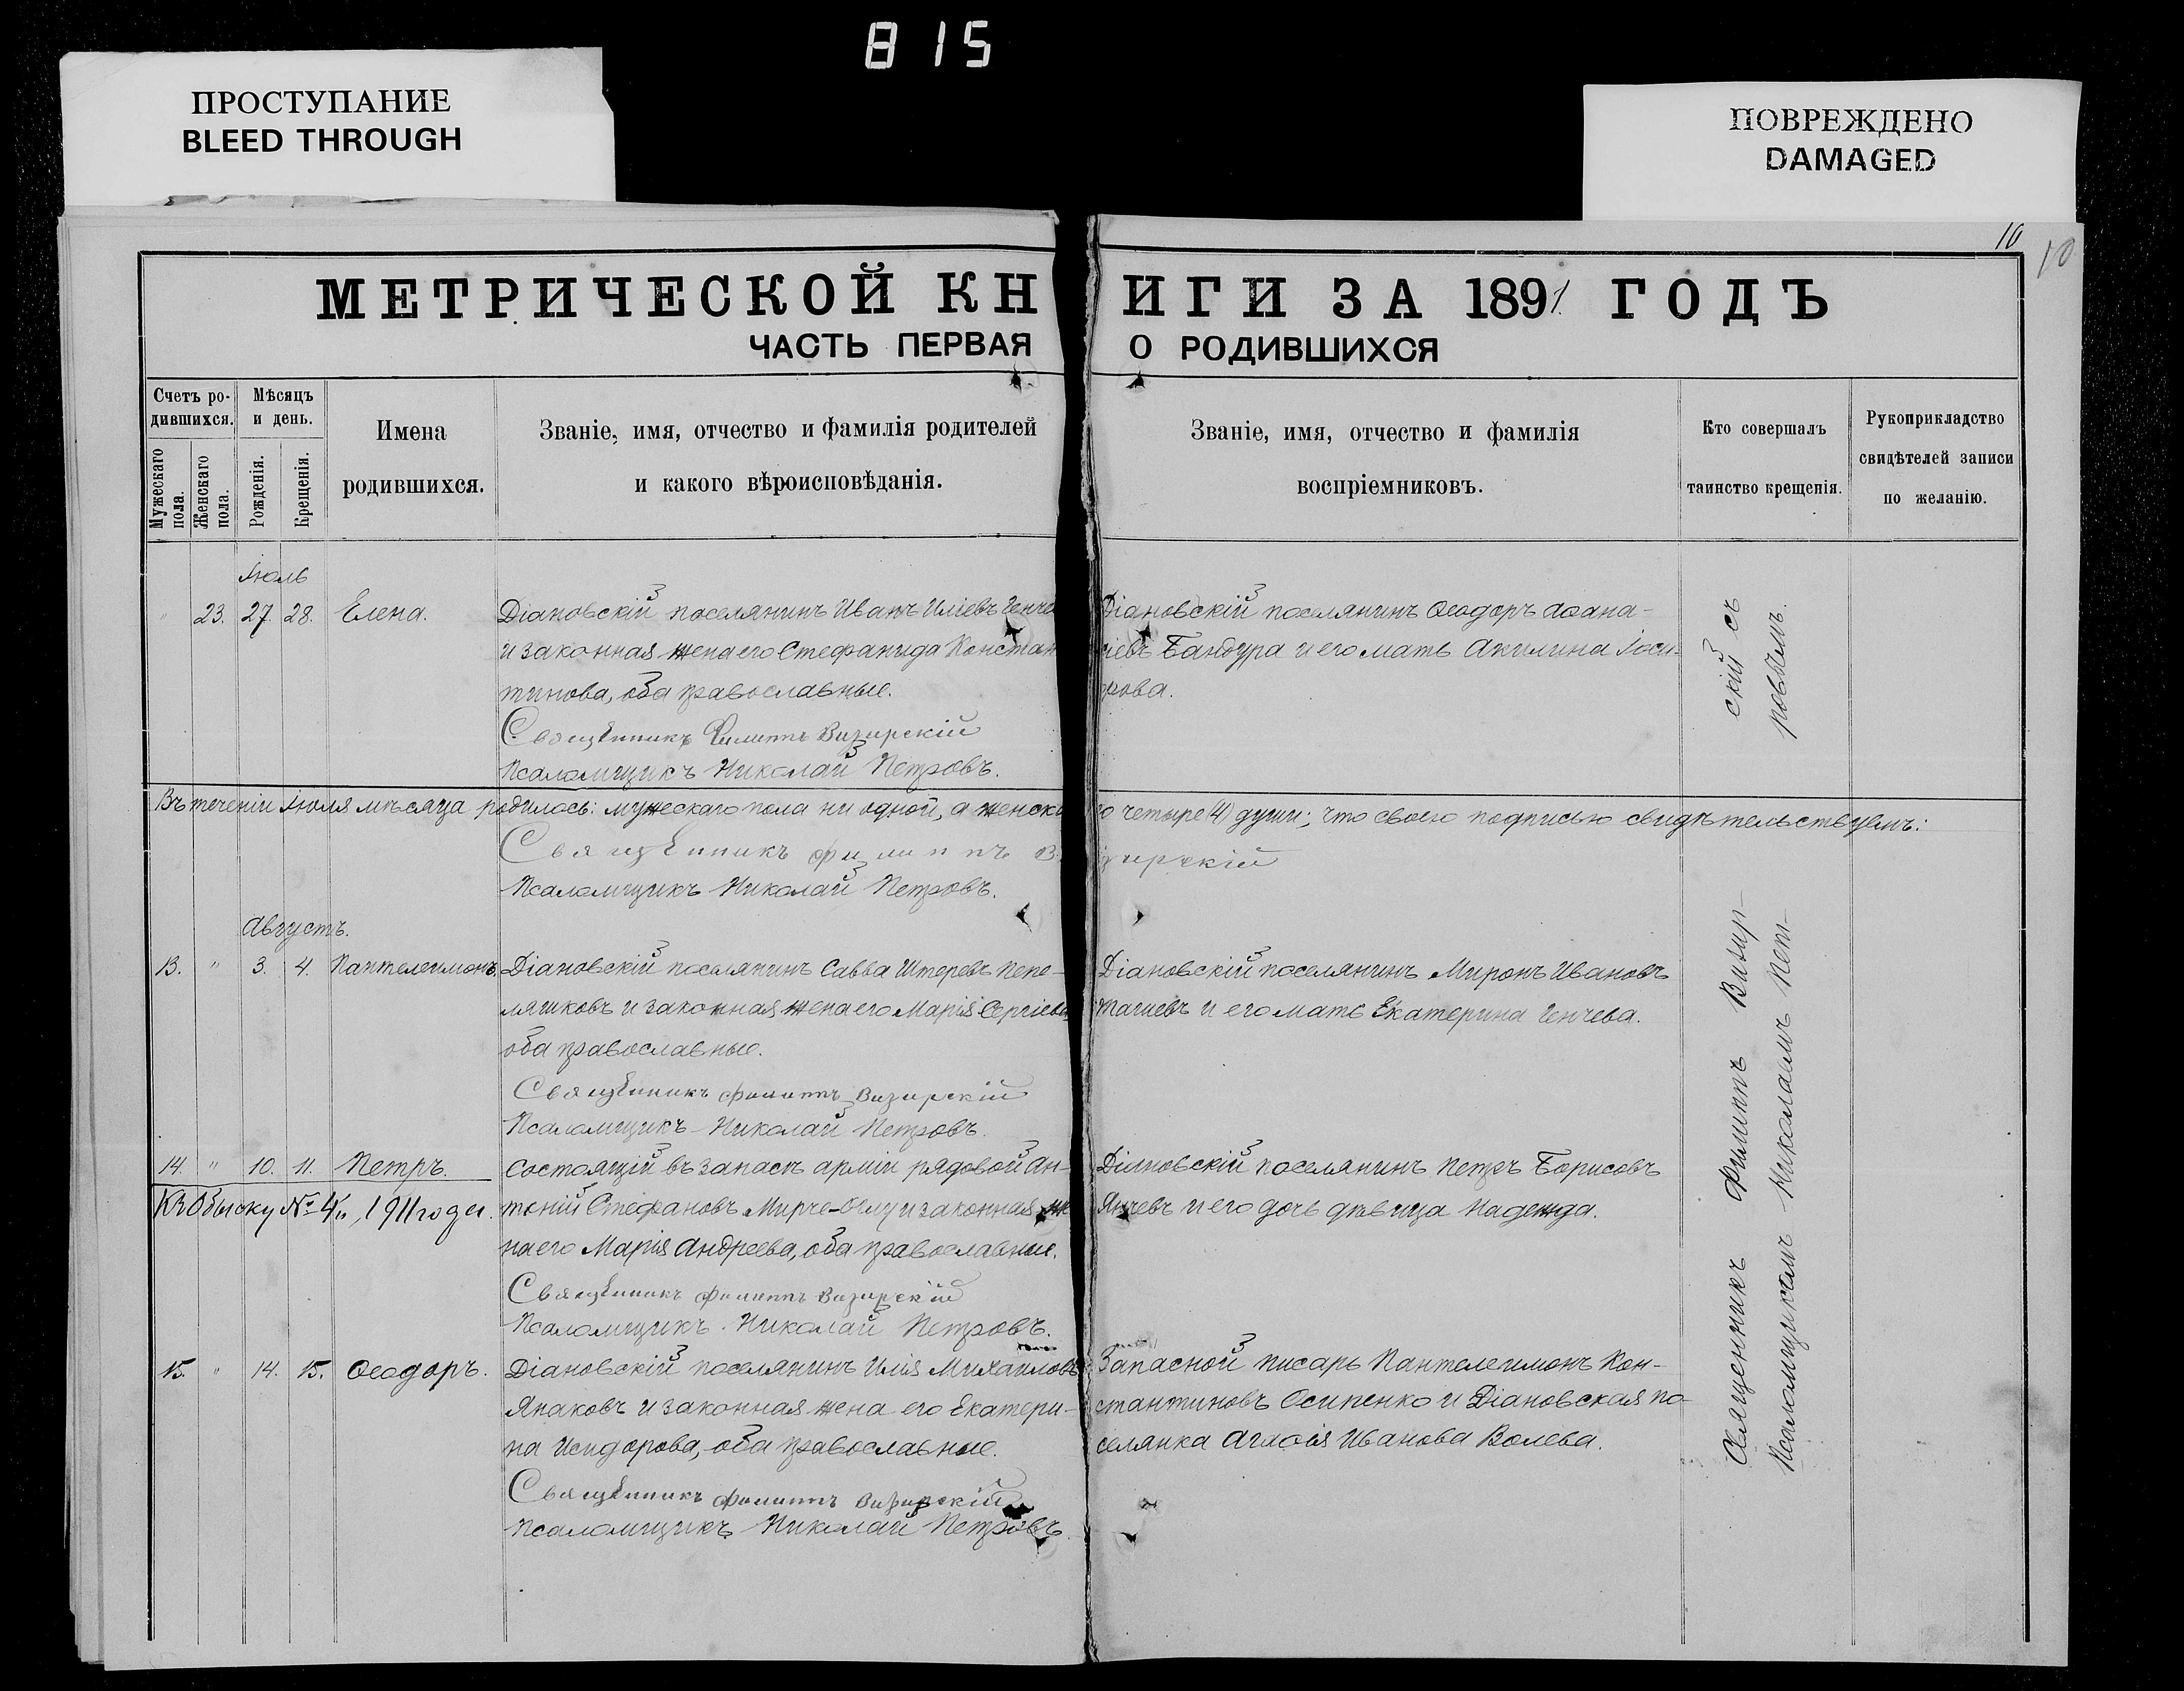 815
ПРОСТУПАНИЕ
BLEED THROUGH
ПОВРЕЖДЕНО
DAMAGED
10
10
МЕТРИЧЕСКОЙ КНИГИ ЗА 1891 ГОДЪ
ЧАСТЬ ПЕРВАЯ О РОДИВШИХСЯ
Счетъ ро-
дившихся.
Мужескаго
пола.
Женскаго
пола.
Мѣсяцъ
и день.
Рожденія.
Крещенія.
Имена
родившихся.
Званіе, имя, отчество и фамилія родителей
и какого вѣроисповѣданія.
Званіе, имя, отчество и фамилія
воспріемниковъ.
Кто совершалъ
таинство крещенія.
Рукоприкладство
свидѣтелей записи
по желанію.
Іюль
" 23. 27. 28. Елена.
Діановскій поселянинъ Иванъ Иліевъ Генче
и законная жена его Стефанида Констан
тинова, оба православные.
Священникъ Филиппъ Визирскій
Псаломщикъ Николай Петровъ.
Діановскій поселянинъ Ѳеодоръ Аѳана-
сіевъ Бандура и его мать Акилина
Въ теченіи Іюля мѣсяца родилось: мужескаго пола ни одной, а женскаго четыре (4) души; что своею подписью свидѣтельствуемъ:
Священникъ Филиппъ Визирскій
Псаломщикъ Николай Петровъ.
Августъ.
13. " 3. 4. Пантелеимонъ.
Діановскій поселянинъ Савва Штеревъ Пепе-
ляшковъ и законная жена его Марія Сергіева
оба православные.
Священникъ Филиппъ Визирскій
Псаломщикъ Николай Петровъ.
Діановскій поселянинъ Миронъ Ивановъ
и его мать Екатерина Генчева.
14. " 10. 11. Петръ.
Къ Обыску № 4й, 1911 года.
Состоящій въ запасѣ арміи рядовой Ан-
тоній Стефановъ Мирче-Оглу и законная же
на его Марія Андреева, оба православные.
Священникъ Филиппъ Визирскій
Псаломщикъ Николай Петровъ.
Діановскій поселянинъ Петръ Борисовъ
Янчевъ и его дочь дѣвица Надежда.
15. " 14. 15. Ѳеодоръ.
Діановскій поселянинъ Илія Михаиловъ
Янаковъ и законная жена его Екатери-
на Исидорова, оба православные.
Священникъ Филиппъ Визирскій
Псаломщикъ Николай Петровъ.
Запасной писарь Пантелеимонъ Кон-
стантиновъ Осипенко и Діановская по-
селянка Агаѳія Иванова Волева.
Священникъ Филиппъ Визирскій съ
Псаломщикомъ Николаемъ Петровымъ.